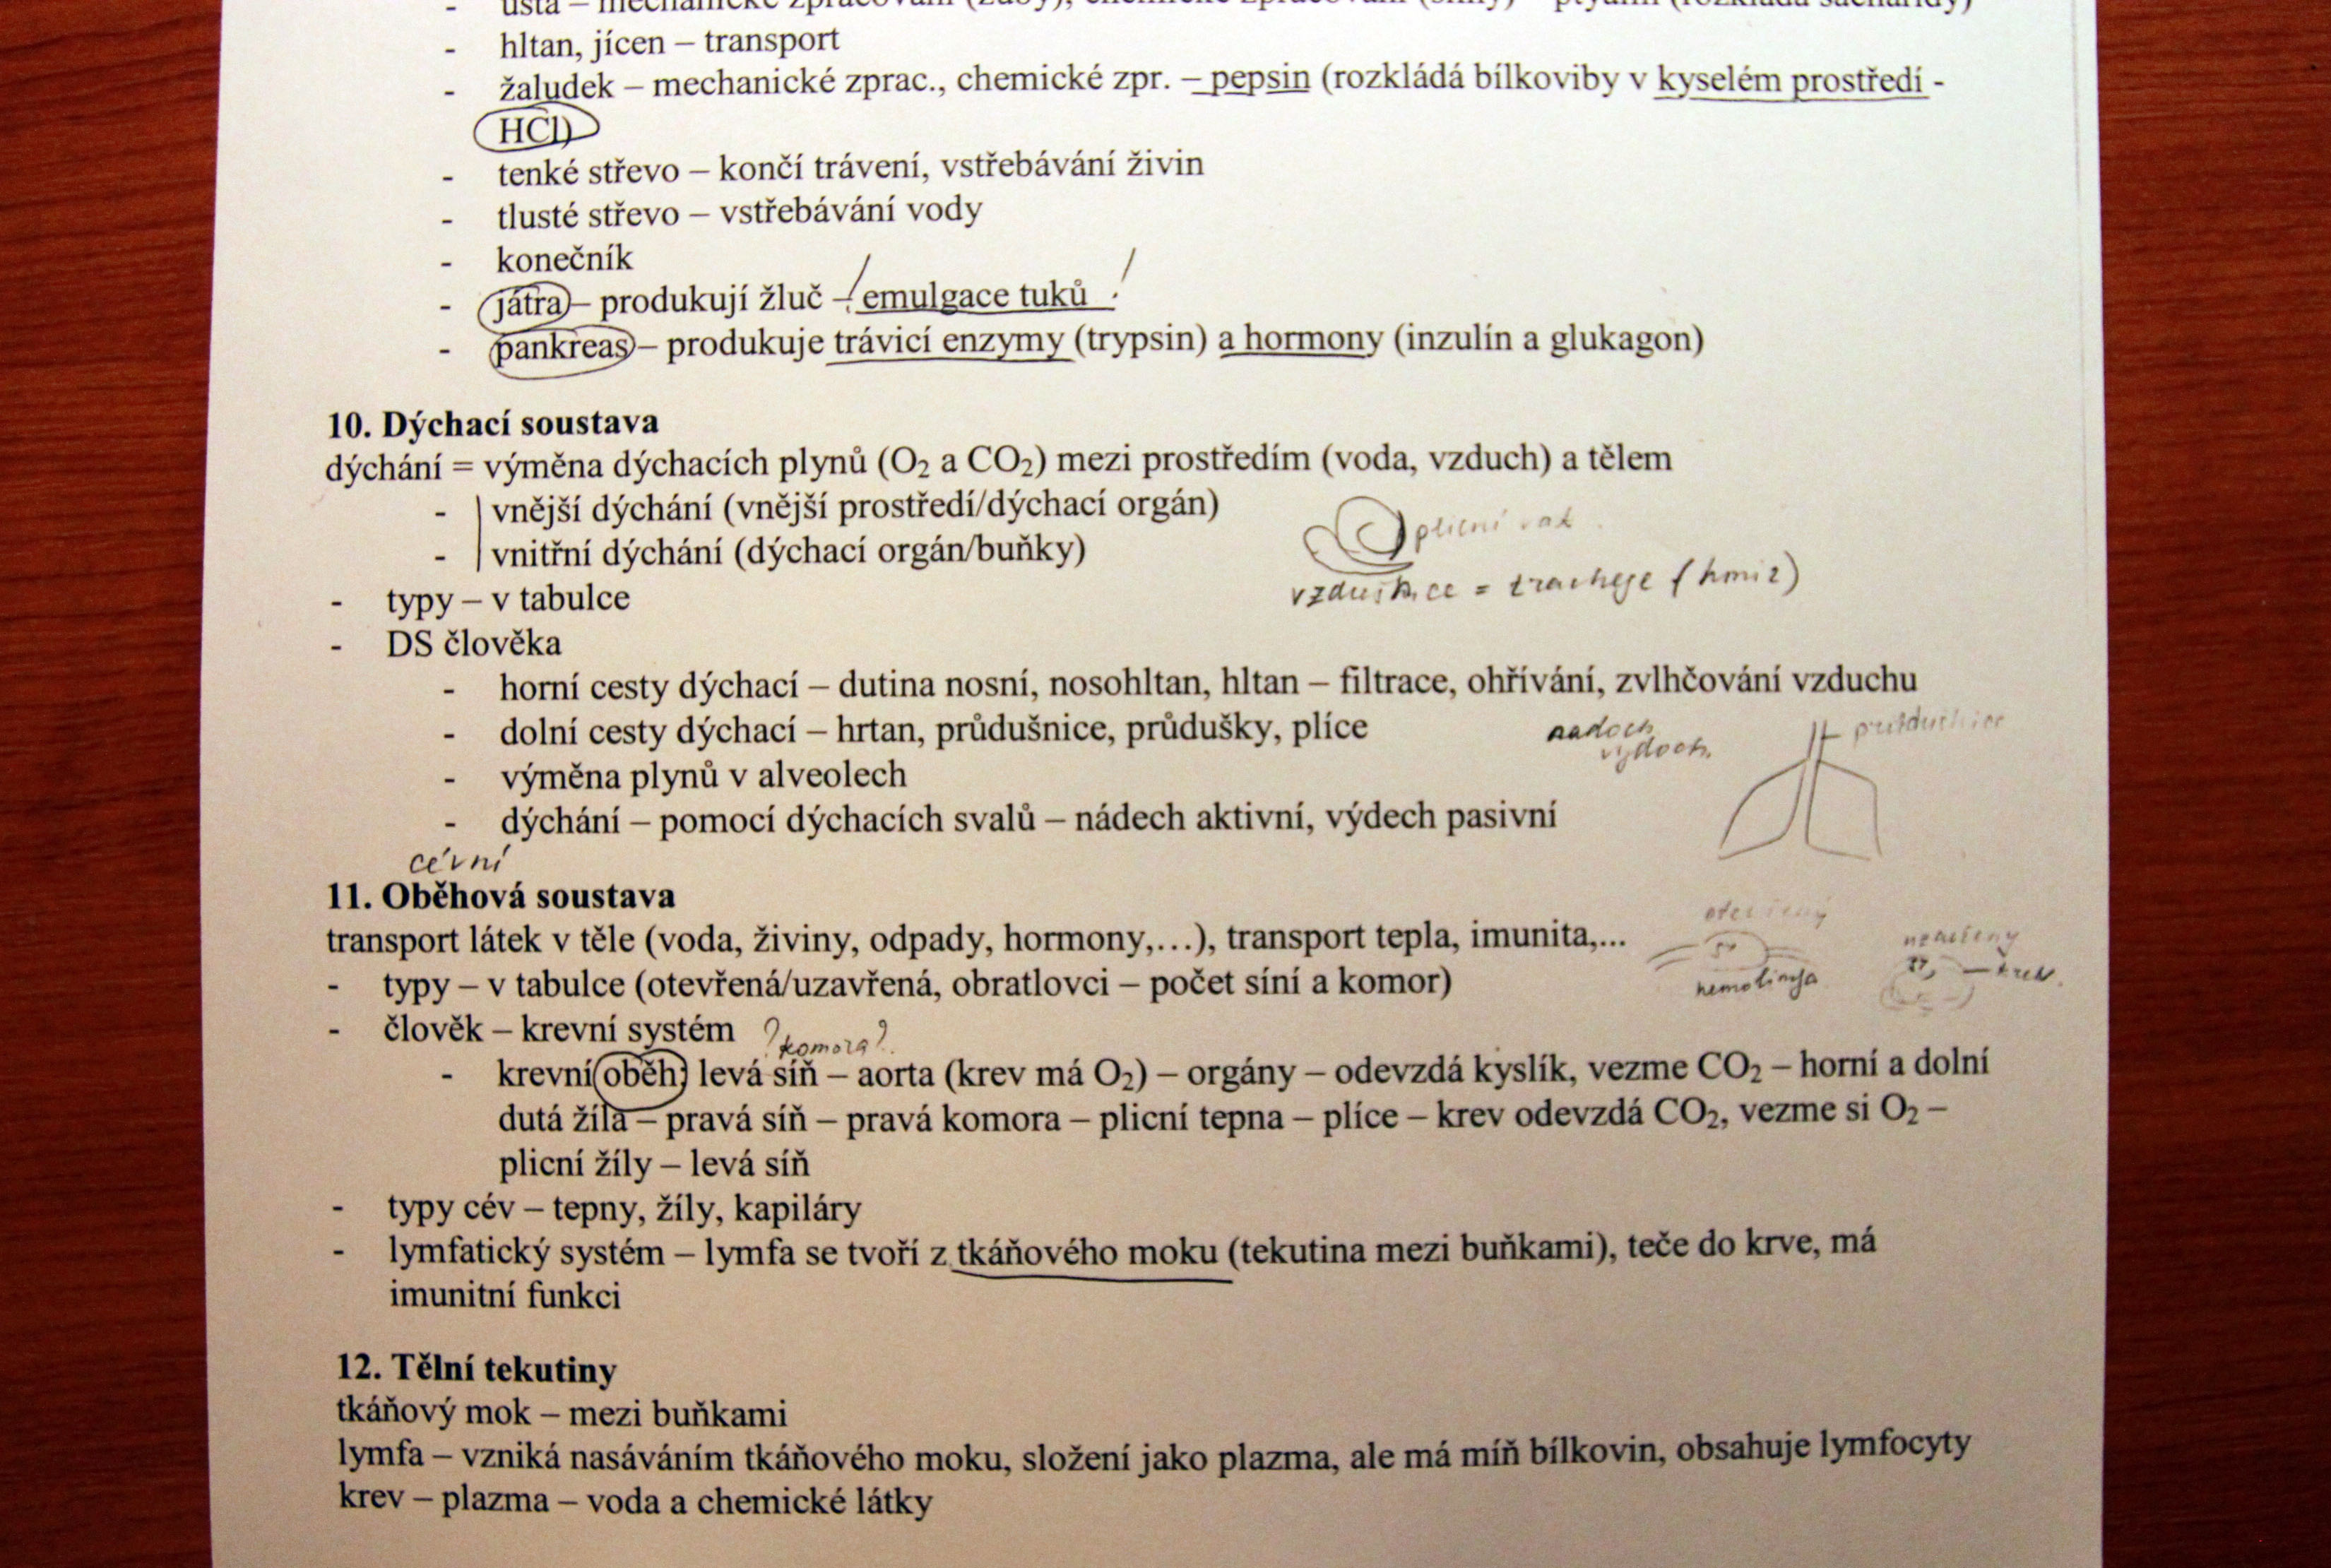 - ústa – mechanické zpracování (zuby), chemické zpracování (sliny) – ptyalin (rozkládá sacharidy)
- hltan, jícen – transport
- žaludek – mechanické zprac., chemické zpr. – pepsin (rozkládá bílkoviby v kyselém prostředí -
HCl)
- tenké střevo – končí trávení, vstřebávání živin
- tlusté střevo – vstřebávání vody
- konečník
- játra – produkují žluč – emulgace tuků !
- pankreas – produkuje trávicí enzymy (trypsin) a hormony (inzulín a glukagon)
10. Dýchací soustava
dýchání = výměna dýchacích plynů (O₂ a CO₂) mezi prostředím (voda, vzduch) a tělem
- vnější dýchání (vnější prostředí/dýchací orgán)
plicní vak
- vnitřní dýchání (dýchací orgán/buňky)
vzdušnice = tracheje (hmiz)
- typy – v tabulce
- DS člověka
- horní cesty dýchací – dutina nosní, nosohltan, hltan – filtrace, ohřívání, zvlhčování vzduchu
- dolní cesty dýchací – hrtan, průdušnice, průdušky, plíce
nadech
výdech
průdušnice
- výměna plynů v alveolech
- dýchání – pomocí dýchacích svalů – nádech aktivní, výdech pasivní
cévní
11. Oběhová soustava
otevřený
transport látek v těle (voda, živiny, odpady, hormony,…), transport tepla, imunita,...
uzavřený
- typy – v tabulce (otevřená/uzavřená, obratlovci – počet síní a komor)
hemolimfa
krev
- člověk – krevní systém
?komora?
- krevní oběh) levá síň – aorta (krev má O₂) – orgány – odevzdá kyslík, vezme CO₂ – horní a dolní
dutá žíla – pravá síň – pravá komora – plicní tepna – plíce – krev odevzdá CO₂, vezme si O₂ –
plicní žíly – levá síň
- typy cév – tepny, žíly, kapiláry
- lymfatický systém – lymfa se tvoří z tkáňového moku (tekutina mezi buňkami), teče do krve, má
imunitní funkci
12. Tělní tekutiny
tkáňový mok – mezi buňkami
lymfa – vzniká nasáváním tkáňového moku, složení jako plazma, ale má míň bílkovin, obsahuje lymfocyty
krev – plazma – voda a chemické látky